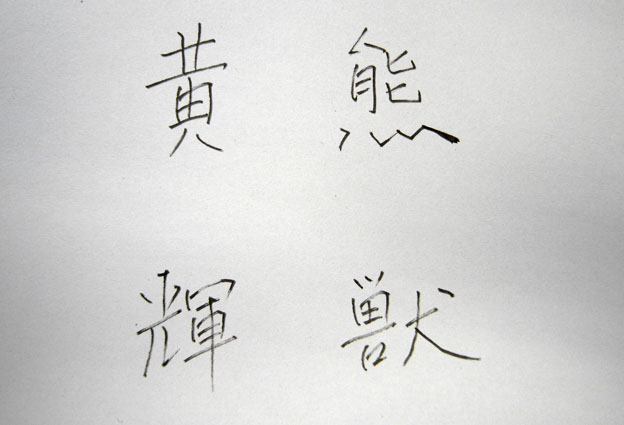 黄 熊
輝 獣